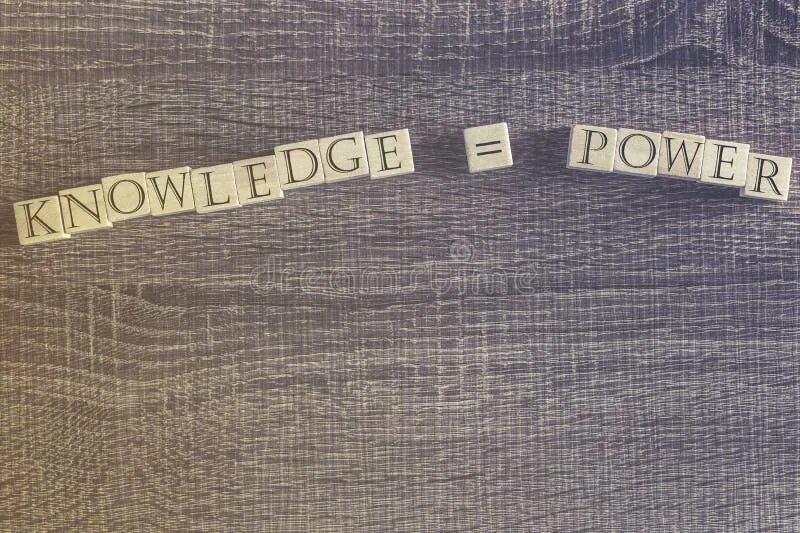 KNOWLEDGE = POWER
dreamstime